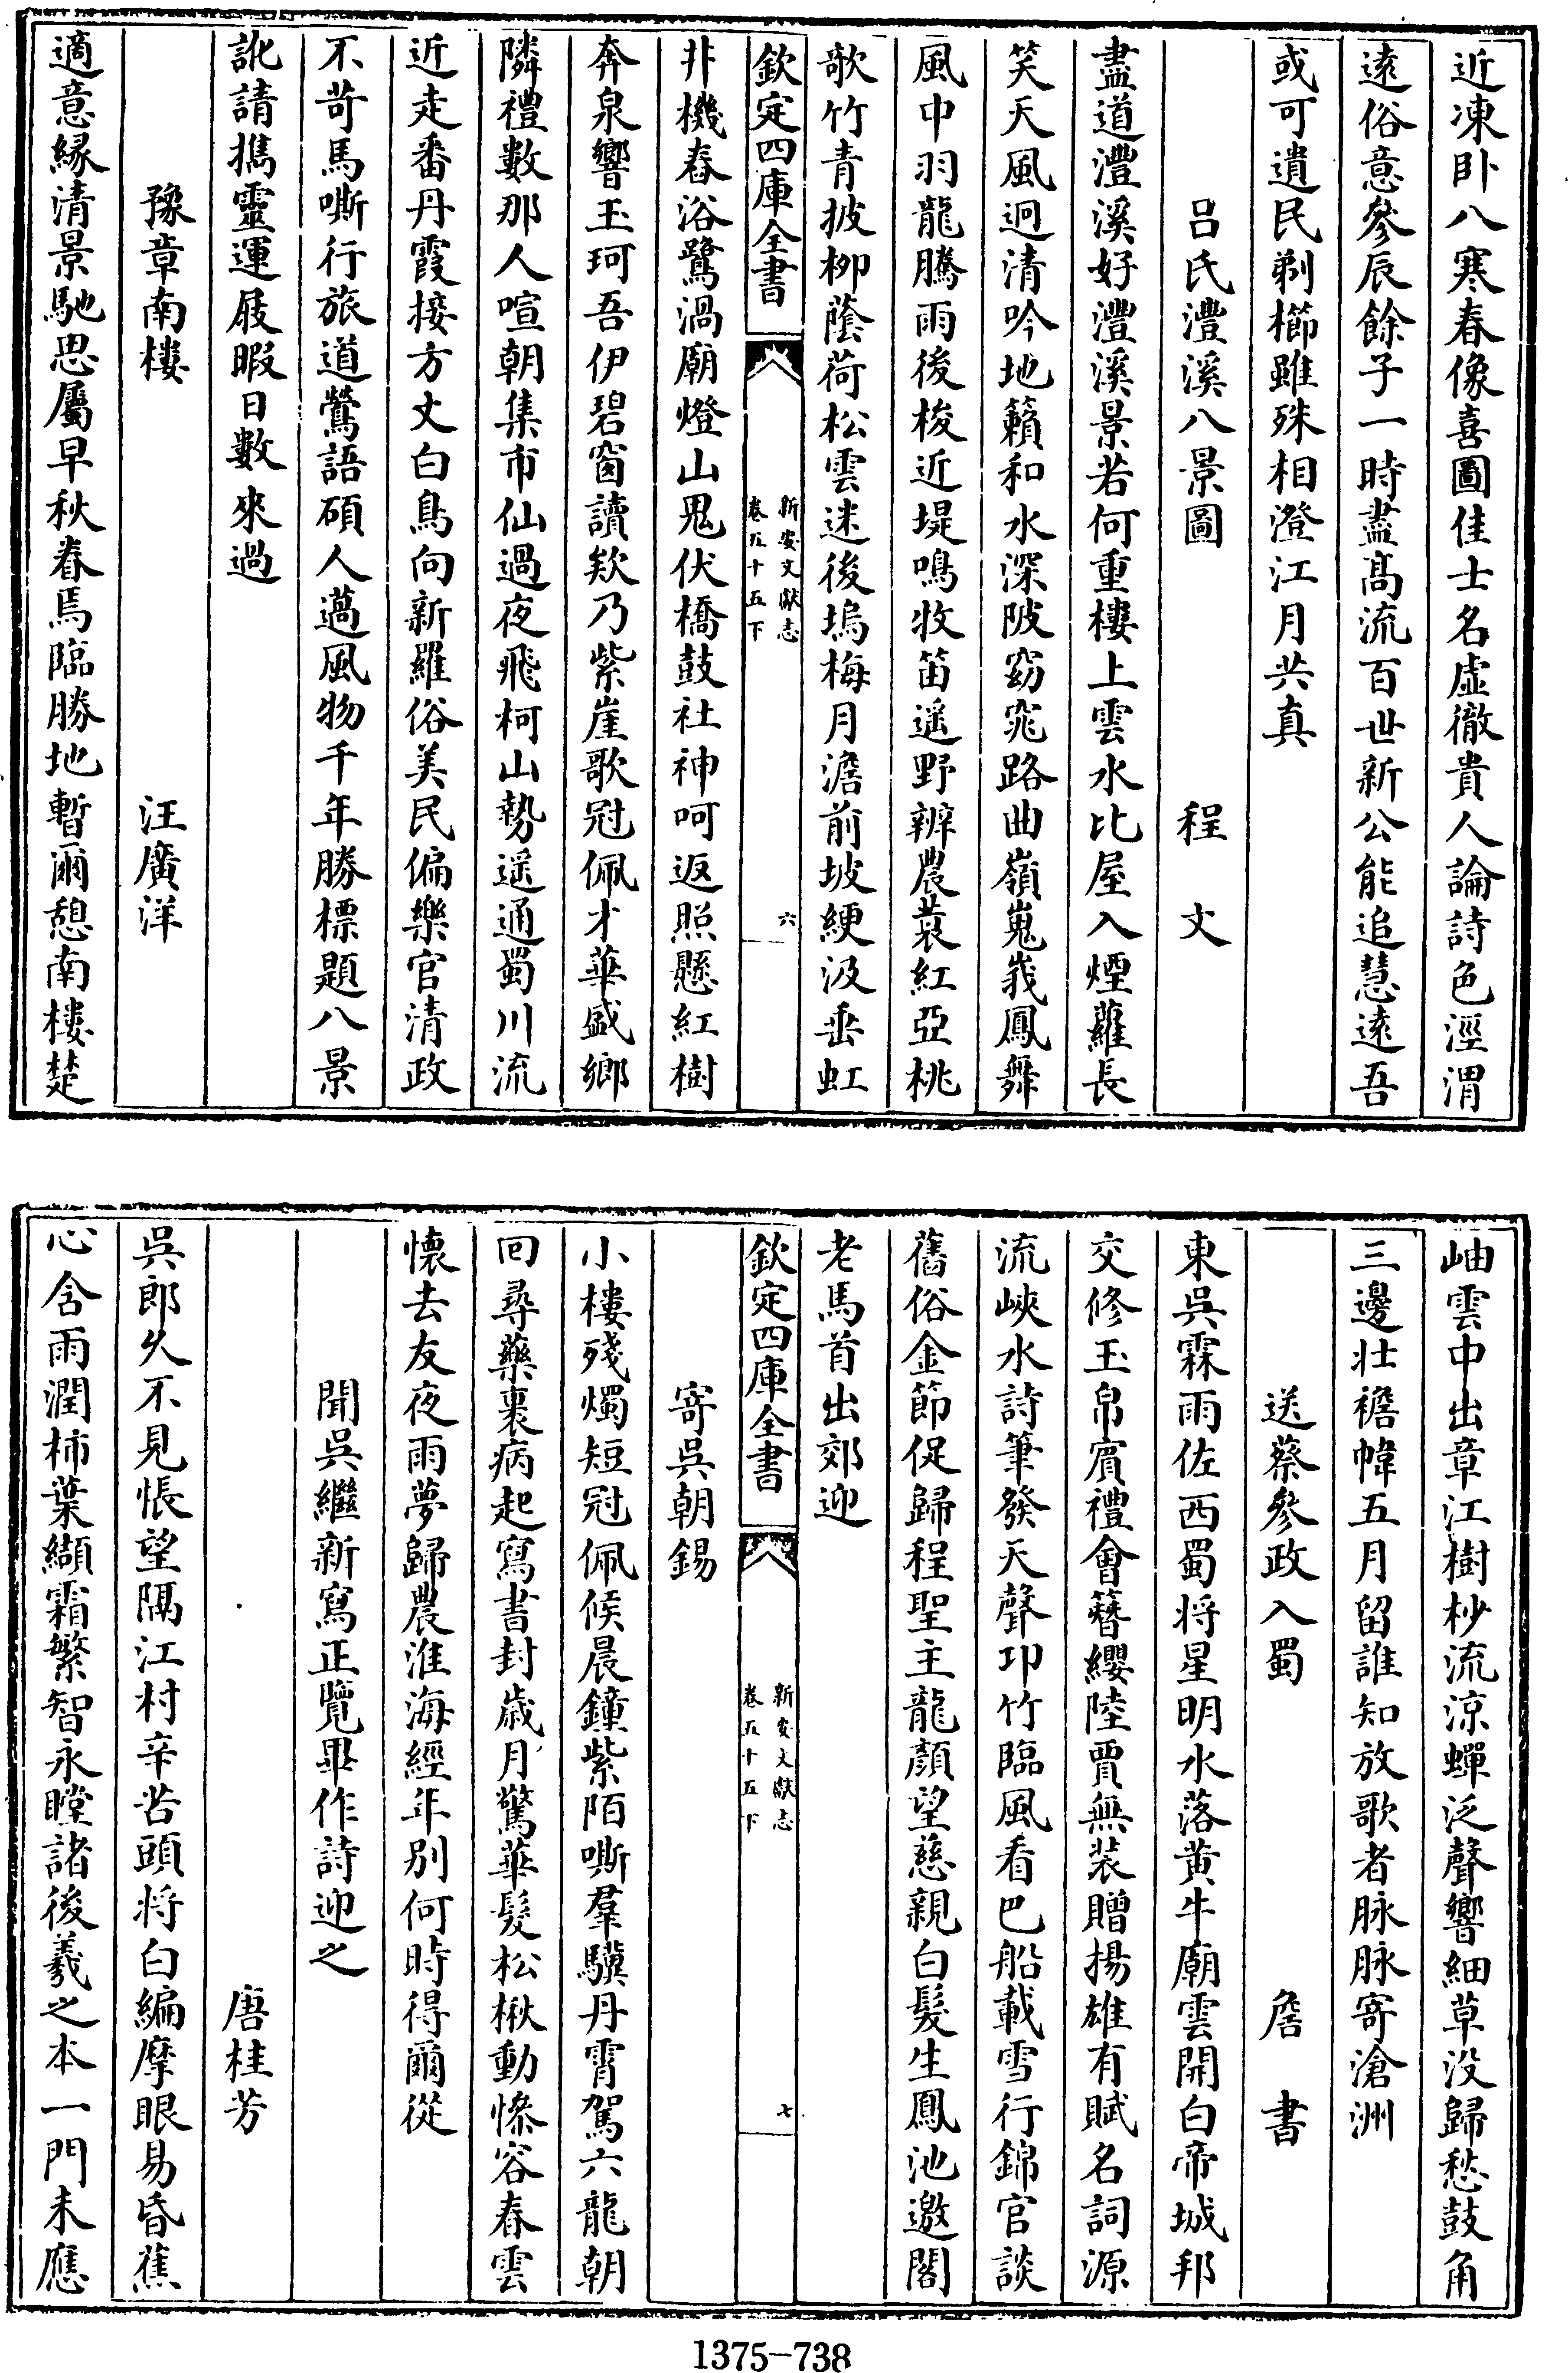 近凍卧八寒春像喜圖佳士名虛徹貴人論詩色涇渭
遠俗意參辰餘子一時盡髙流百世新公能追慧遠吾
或可遺民剃櫛雖殊相澄江月共真
吕氏灃溪八景圖 程文
盡道灃溪好灃溪景若何重樓上雲水比屋入煙蘿長
笑天風迥清吟地籟和水深陂窈窕路曲嶺嵬峩鳳舞
風中羽龍騰雨後梭近堤鳴牧笛遥野辨農蓑紅亞桃
歌竹青披柳蔭荷松雲迷後塢梅月澹前坡綆汲垂虹
欽定四庫全書 新安文獻志 卷五十五下 六
井機舂浴鷺渦廟燈山鬼伏橋鼓社神呵返照懸紅樹
奔泉響玉珂吾伊碧窗讀欸乃紫崖歌冠佩才華盛鄉
隣禮數那人喧朝集市仙過夜飛柯山勢遥通蜀川流
近走番丹霞接方丈白鳥向新羅俗美民偏樂官清政
不苛馬嘶行旅道鶯語碩人薖風物千年勝標題八景
訛請擕靈運屐暇日數來過
豫章南樓 汪廣洋
適意緣清景馳思屬早秋眷焉臨勝地暫爾憩南樓楚
岫雲中出章江樹杪流涼蟬泛聲響細草没歸愁鼓角
三邊壯襜幃五月留誰知放歌者脉脉寄滄洲
送蔡參政入蜀 詹書
東吳霖雨佐西蜀将星明水落黄牛廟雲開白帝城邦
交修玉帛賓禮會簪纓陸賈無装贈揚雄有賦名詞源
流峽水詩筆發天聲卭竹臨風看巴船載雪行錦官談
舊俗金節促歸程聖主龍顔望慈親白髮生鳳池邀閣
老馬首出郊迎
欽定四庫全書 新安文獻志 卷五十五下 七
寄吳朝錫
小樓殘燭短冠佩候晨鐘紫陌嘶羣驥丹霄駕六龍朝
回尋藥裹病起寫書封歳月驚華髮松楸動慘容春雲
懐去友夜雨夢歸農淮海經年别何時得爾從
聞吳繼新寫正覽畢作詩迎之
唐桂芳
吳郎久不見悵望隔江村辛苦頭将白編摩眼易昏蕉
心含雨潤柿葉纈霜繁智永瞠諸後羲之本一門未應
1375-738